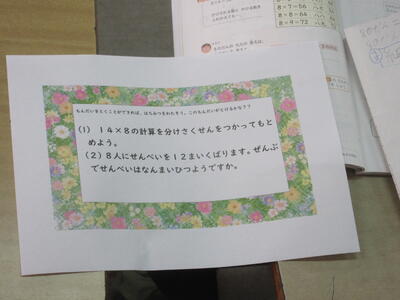 8×7=56
8×8=64
8×9=72
もんだいをとくことができれば、はちみつをわたそう。このもんだいがとけるかな？？
(1) 14×8の計算を分けさくせんをつかってもと
めよう。
(2) 8人にせんべいを12まいくばります。ぜんぶ
でせんべいはなんまいひつようですか。